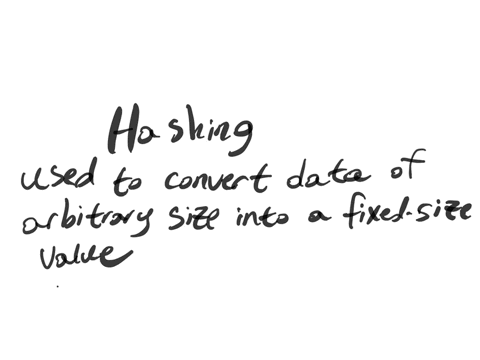 Hashing
used to convert data of
arbitrary size into a fixed-size
value